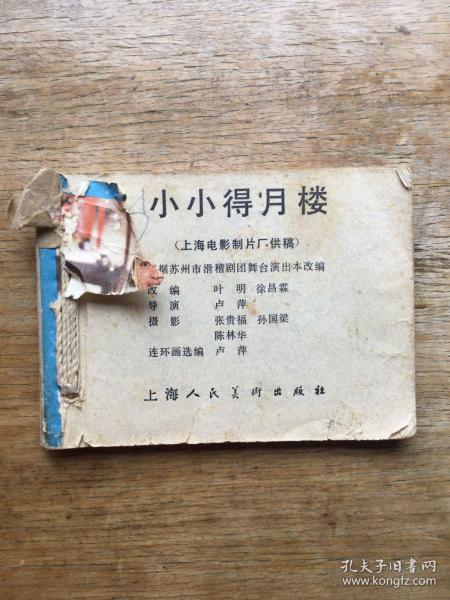 小小得月楼
(上海电影制片厂供稿)
据苏州市滑稽剧团舞台演出本改编
改 编 叶 明 徐昌霖
导 演 卢 萍
摄 影 张贵福 孙国梁
陈林华
连环画选编 卢 萍
上海人民美术出版社
孔夫子旧书网
www.kongfz.com